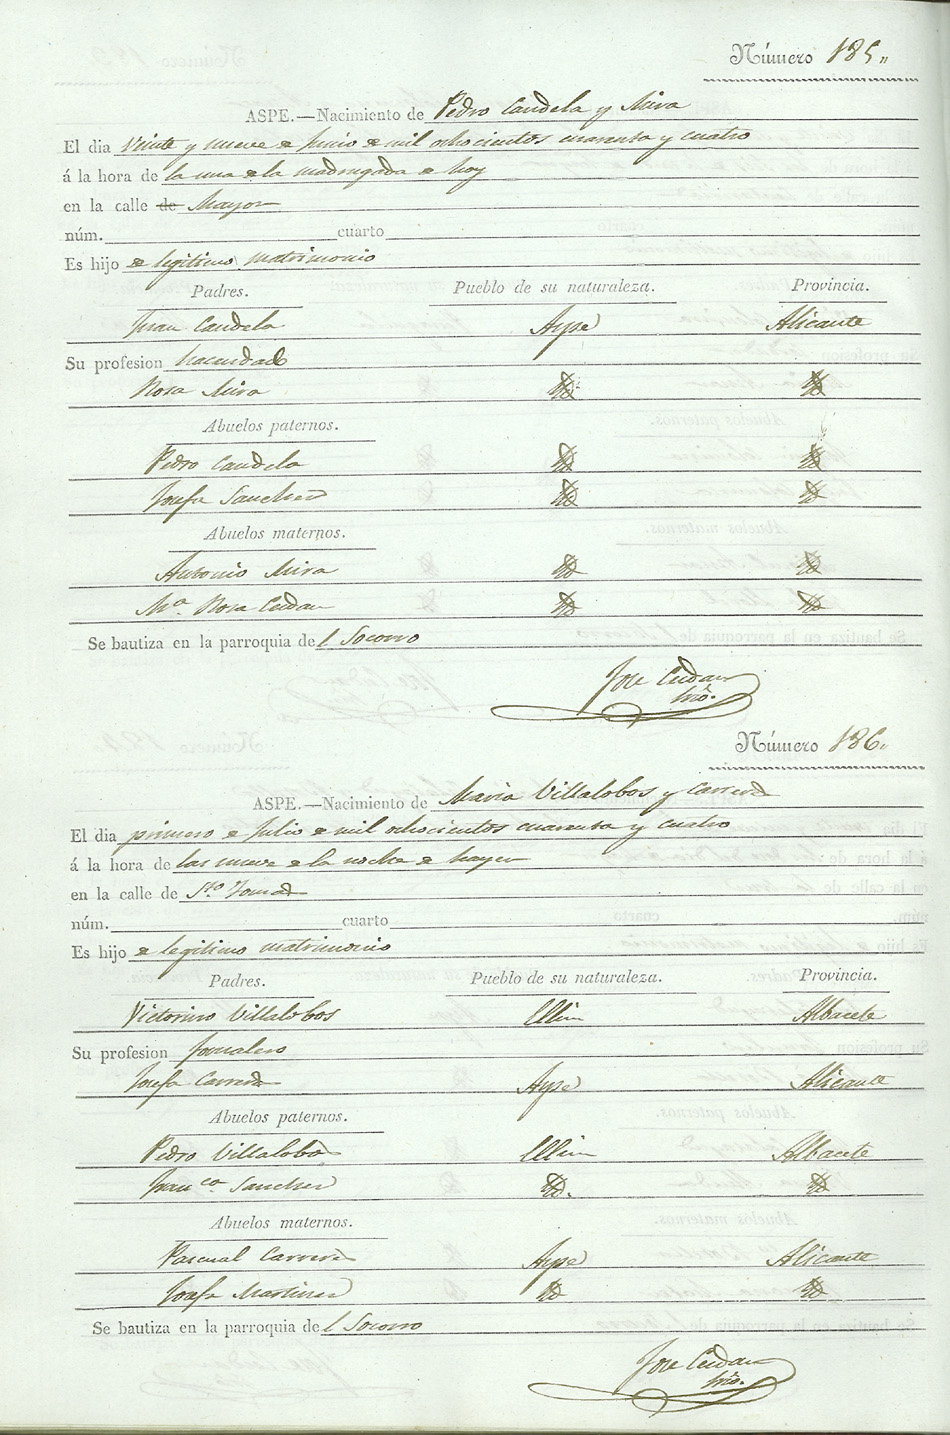 Número 185,,
ASPE.—Nacimiento de Pedro Candela y Mira
El dia veinte y nueve de Junio de mil ochocientos cuarenta y cuatro
á la hora de la una de la madrugada de hoy
en la calle de Mayor
núm. cuarto
Es hijo de legitimo matrimonio
Padres. Pueblo de su naturaleza. Provincia.
Juan Candela Aspe Alicante
Su profesion hacendado
Rosa Mira Yd Yd
Abuelos paternos.
Pedro Candela Yd Yd
Josefa Sanchez Yd Yd
Abuelos maternos.
Antonio Mira Yd Yd
Mª. Rosa Yd Yd
Se bautiza en la parroquia del Socorro
Jose
Número 186,,
ASPE.—Nacimiento de Maria Villalobos y Carrera
El dia primero de Julio de mil ochocientos cuarenta y cuatro
á la hora de las nueve de la noche de hayer
en la calle de Sto Tomas
núm. cuarto
Es hijo de legitimo matrimonio
Padres. Pueblo de su naturaleza. Provincia.
Victorino Villalobos Ellin Albacete
Su profesion Jornalero
Josefa Carrera Aspe Alicante
Abuelos paternos.
Pedro Villalobos Ellin Albacete
Franca. Sanchez Yd. Yd
Abuelos maternos.
Pascual Carrera Aspe Alicante
Josefa Martinez Yd Yd
Se bautiza en la parroquia del Socorro
Jose